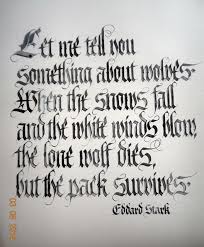 Let me tell you
something about wolves.
When the snows fall
and the white winds blow,
the lone wolf dies,
but the pack survives.
Eddard Stark